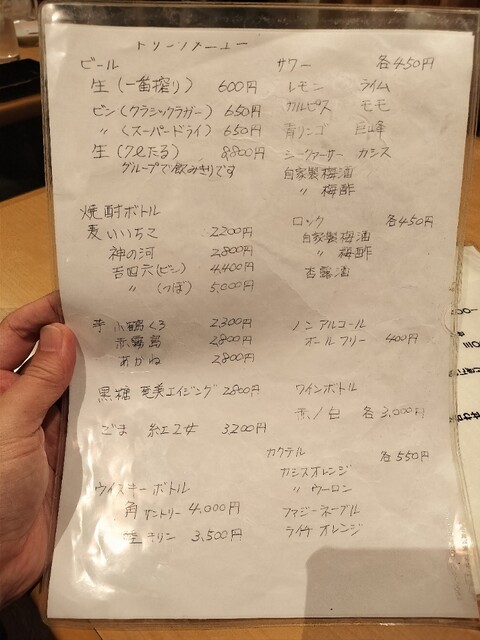 ドリンクメニュー
ビール
生(一番搾り) 600円
ビン(クラシックラガー) 650円
〃 (スーパードライ) 650円
生(7ℓたる) 8,800円
グループで飲みきりです
焼酎ボトル
麦 いいちこ 2,200円
神の河 2,800円
吉四六(ビン) 4,400円
〃 (つぼ) 5,000円
芋 小鶴くろ 2,300円
赤霧島 2,800円
あかね 2,800円
黒糖 奄美エイジング 2,800円
ごま 紅乙女 3,200円
ウイスキーボトル
角 サントリー 4,000円
陸 キリン 3,500円
サワー 各450円
レモン ライム
カルピス モモ
青リンゴ 巨峰
シークァーサー カシス
自家製梅酒
〃 梅酢
ロック 各450円
自家製梅酒
〃 梅酢
杏露酒
ノンアルコール
オールフリー 400円
ワインボトル
赤/白 各3,000円
カクテル 各550円
カシスオレンジ
〃 ウーロン
ファジーネーブル
ライチオレンジ